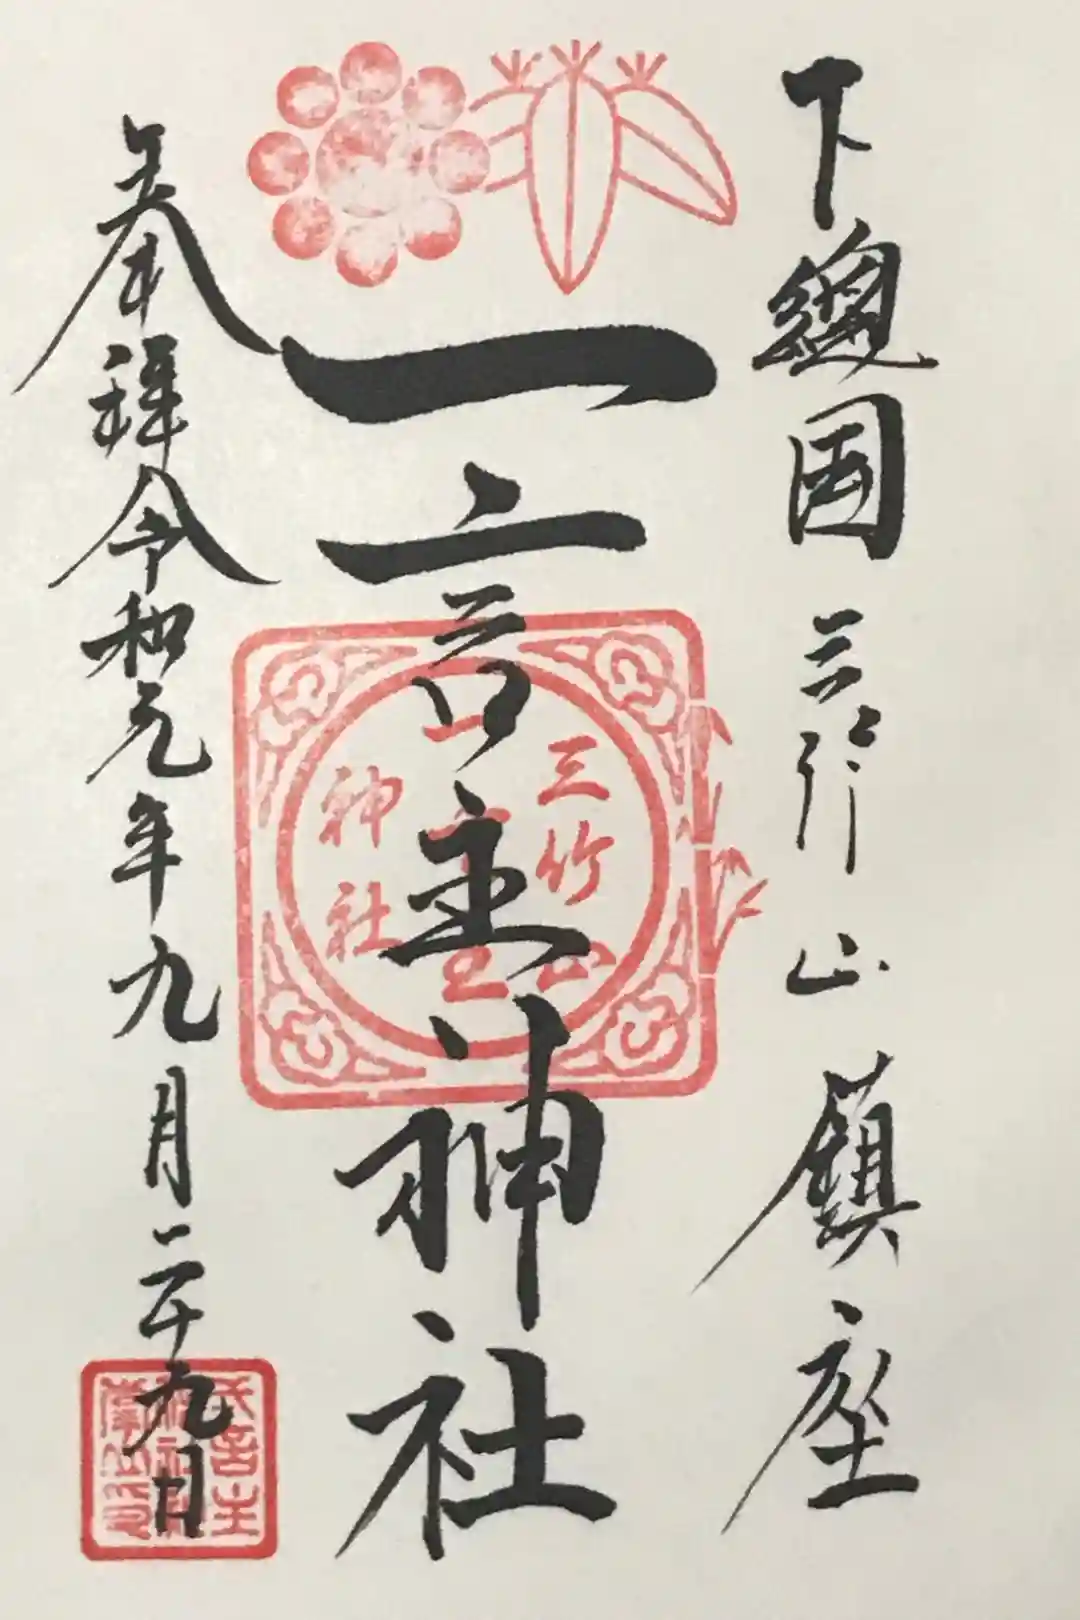 下總国三竹山鎮座
一言主神社
奉拝令和元年九月二十九日
三竹山
一言主
神社